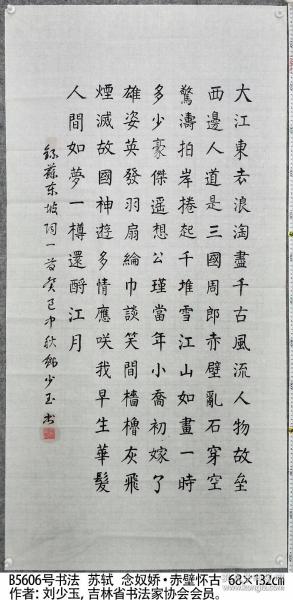 大江東去浪淘盡千古風流人物故壘
西邊人道是三國周郎赤壁亂石穿空
驚濤拍岸捲起千堆雪江山如畫一時
多少豪傑遥想公瑾當年小喬初嫁了
雄姿英發羽扇綸巾談笑間檣櫓灰飛
煙滅故國神遊多情應咲我早生華髮
人間如夢一樽還酹江月
錄蘇東坡词一首癸巳中秋劉少玉书
B5606号书法 苏轼 念奴娇·赤壁怀古 68×132cm
作者: 刘少玉, 吉林省书法家协会会员。